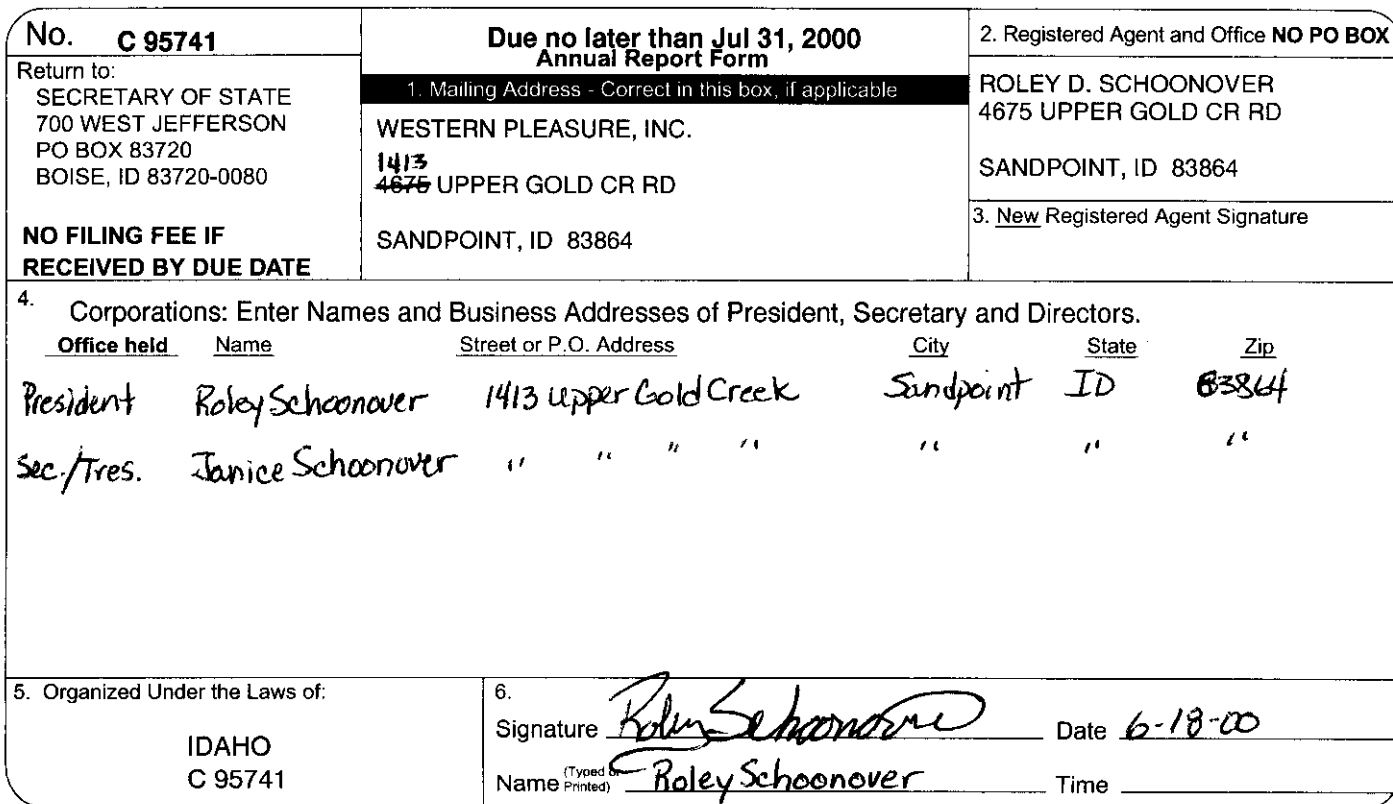 No. C 95741
Return to:
SECRETARY OF STATE
700 WEST JEFFERSON
PO BOX 83720
BOISE, ID 83720-0080
NO FILING FEE IF
RECEIVED BY DUE DATE
Due no later than Jul 31, 2000
Annual Report Form
1. Mailing Address - Correct in this box, if applicable
WESTERN PLEASURE, INC.
1413
4675 UPPER GOLD CR RD
SANDPOINT, ID 83864
2. Registered Agent and Office NO PO BOX
ROLEY D. SCHOONOVER
4675 UPPER GOLD CR RD
SANDPOINT, ID 83864
3. New Registered Agent Signature
4. Corporations: Enter Names and Business Addresses of President, Secretary and Directors.
Office held Name Street or P.O. Address City State Zip
President Roley Schoonover 1413 Upper Gold Creek Sandpoint ID 83864
Sec./Tres. Janice Schoonover " " " " " " "
5. Organized Under the Laws of:
IDAHO
C 95741
6.
Signature Roley Schoonover Date 6-18-00
Name (Typed or Printed) Roley Schoonover Time